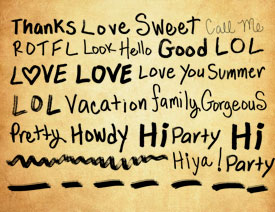 Thanks Love Sweet Call Me
ROTFL Look Hello Good LOL
LOVE LOVE Love You Summer
LOL Vacation family Gorgeous
Pretty Howdy Hi Party Hi
Hiya! Party